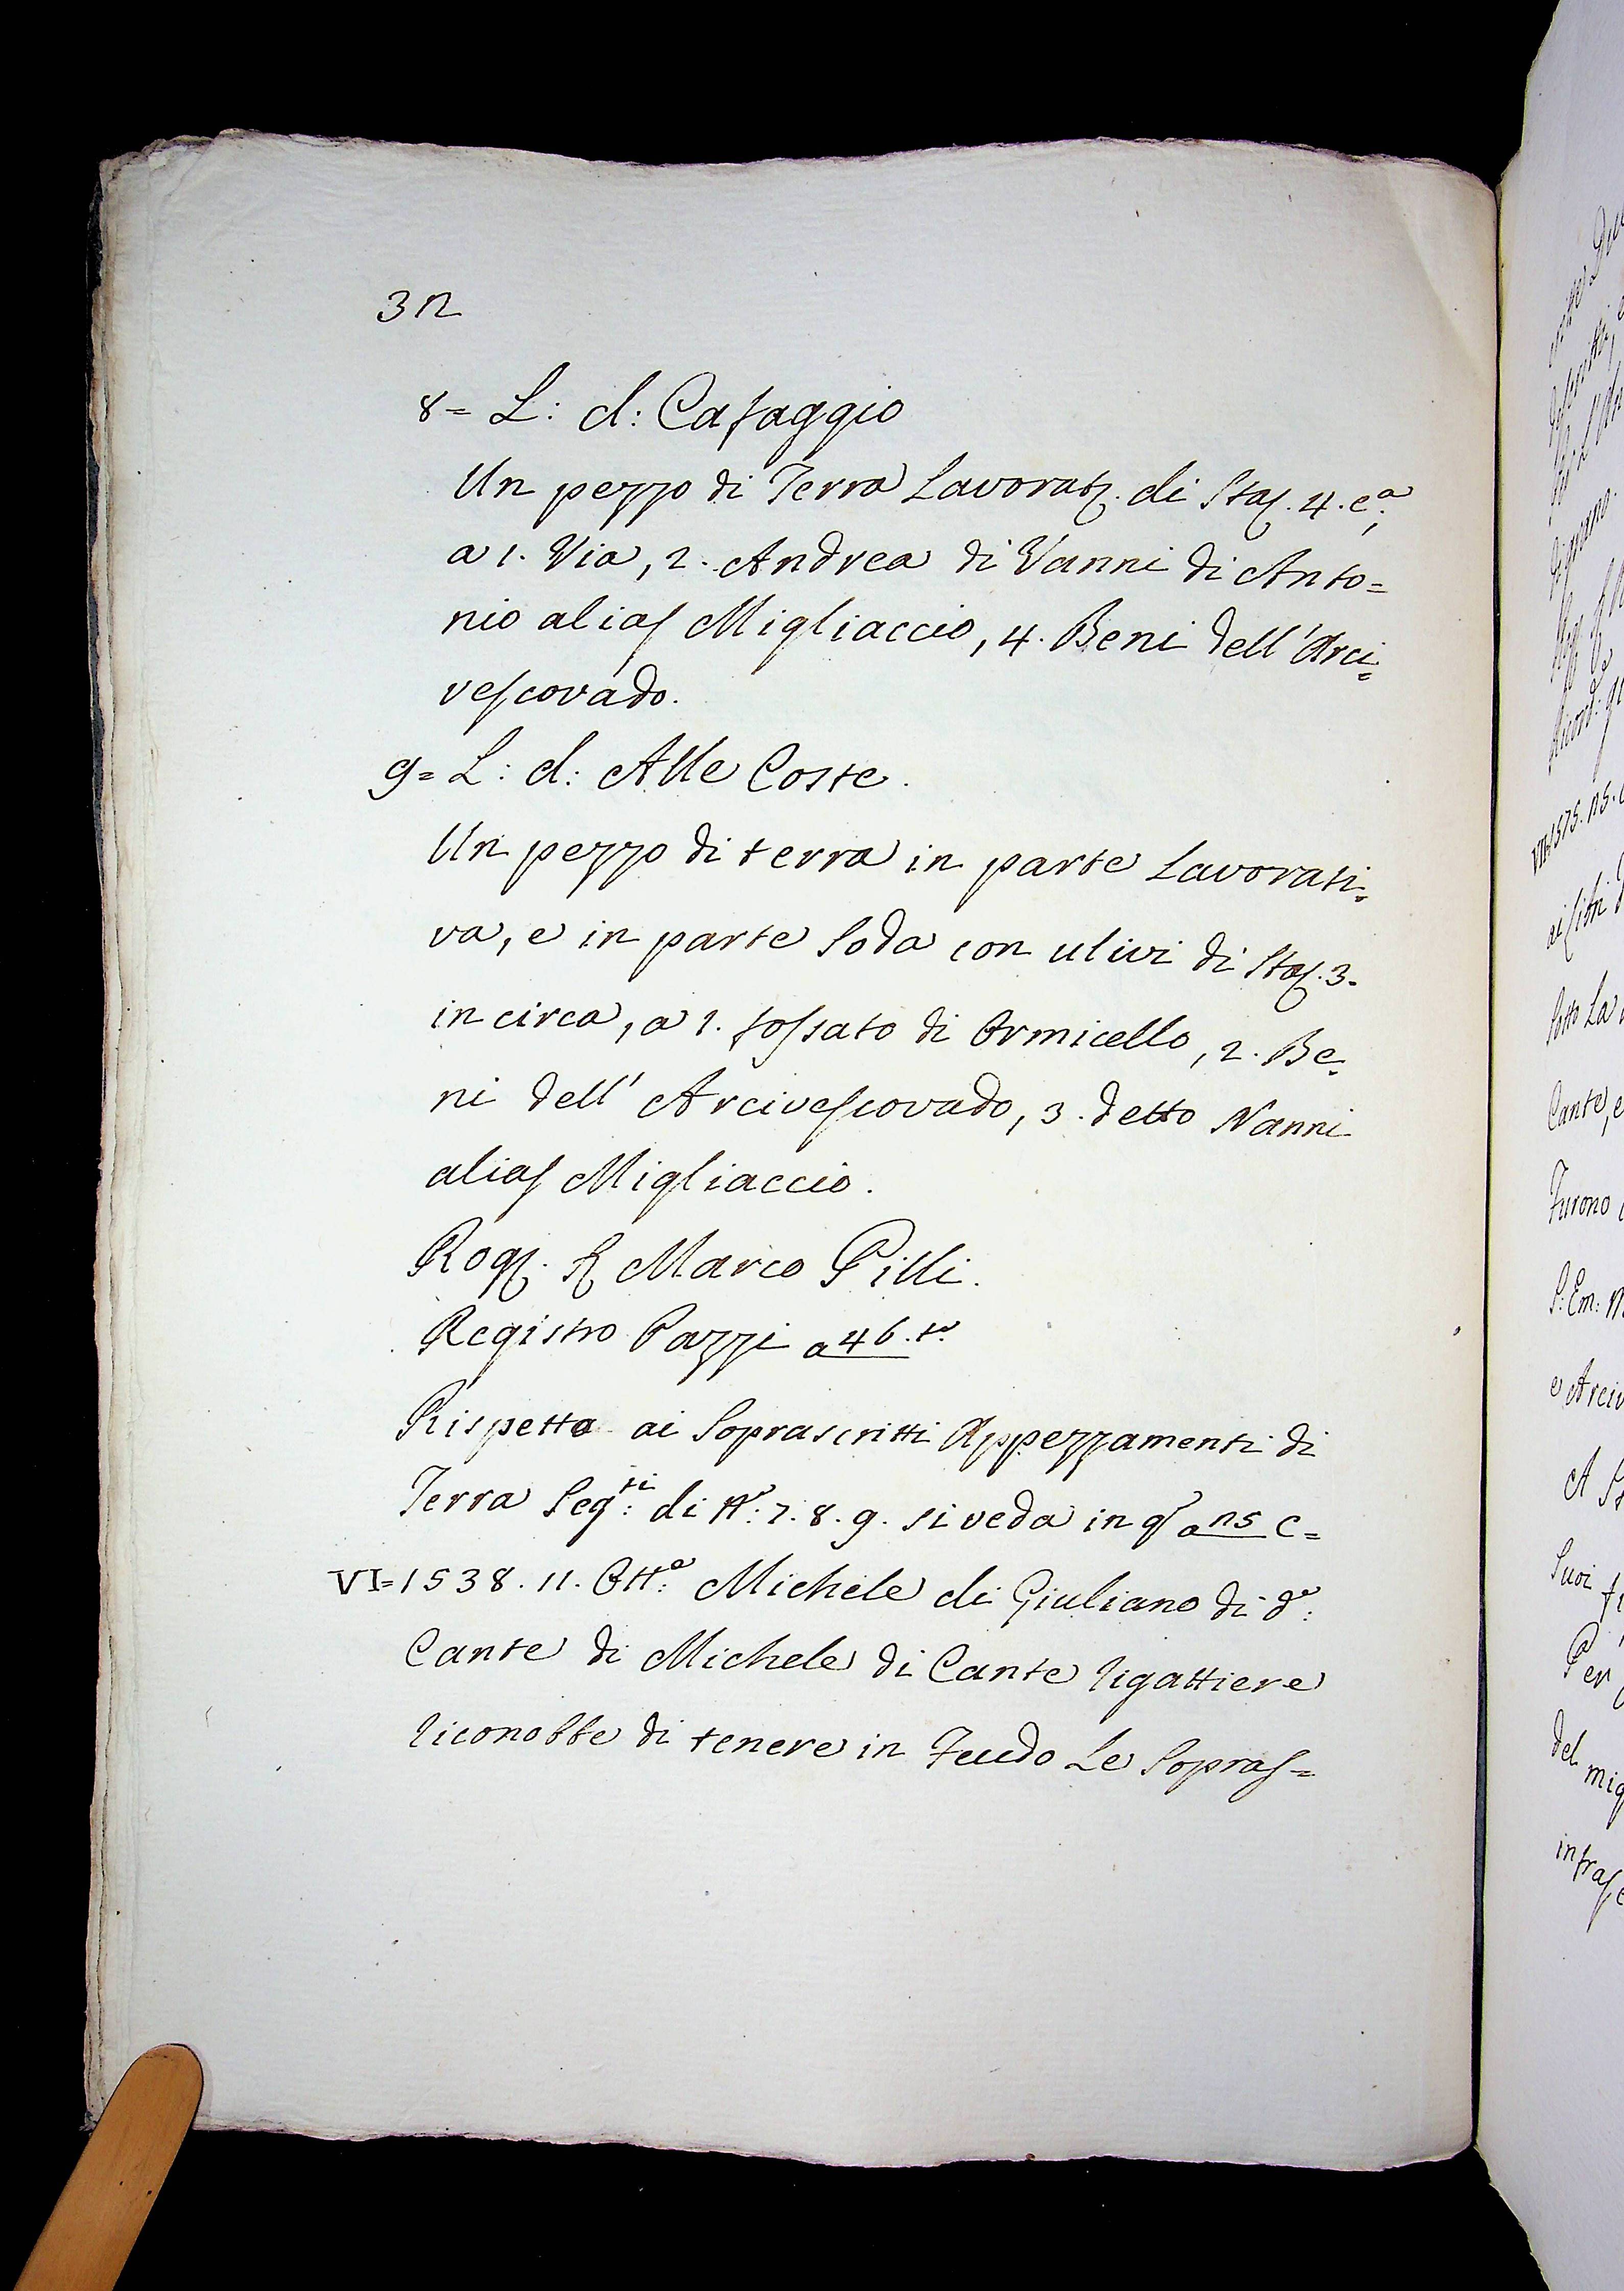 32
8= L: d: Cafaggio
Un pezzo di Terra Lavorat. di Stas. 4. c.a,
a 1. Via, 2. Andrea di Vanni di Anto=
nio alias Migliaccio, 4. Beni dell' Arci=
vescovado.
9= L: d: Alle Coste.
Un pezzo di terra in parte Lavorati=
va, e in parte soda con ulivi di Stas. 3.
in circa, a 1. fossato di Ormicello, 2. Be=
ni dell' Arcivescovado, 3. detto Nanni
alias Migliaccio.
Rog. S. Marco Pilli.
Registro Pazzi a 46. t.o
Rispetto ai Soprascritti Appezzamenti di
Terra Seg.ti: di N.o: 7. 8. 9. si veda in q.o a 25 e=
VI=1538. 11. Ott.e: Michele di Giuliano di d.o:
Cante di Michele di Cante rigattiere
riconobbe di tenere in Feudo Le Sopras=
VII=1575.
Sotto La
Cante, e
Furono
S: Em:
e Arciv
A
Suoi
Per
del mig
infrasc